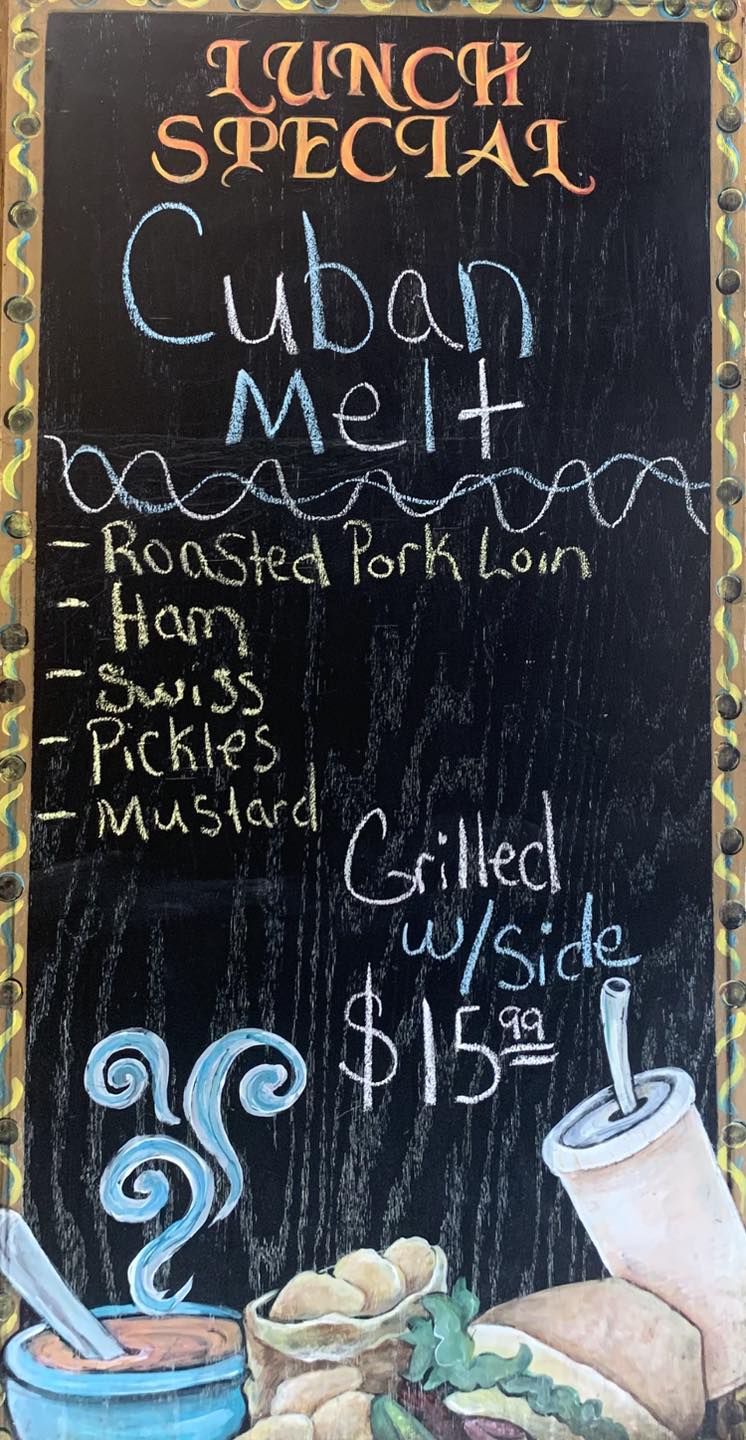 LUNCH
SPECIAL
Cuban
Melt
- Roasted Pork Loin
- Ham
- Swiss
- Pickles
- Mustard
Grilled
w/side
$15.99